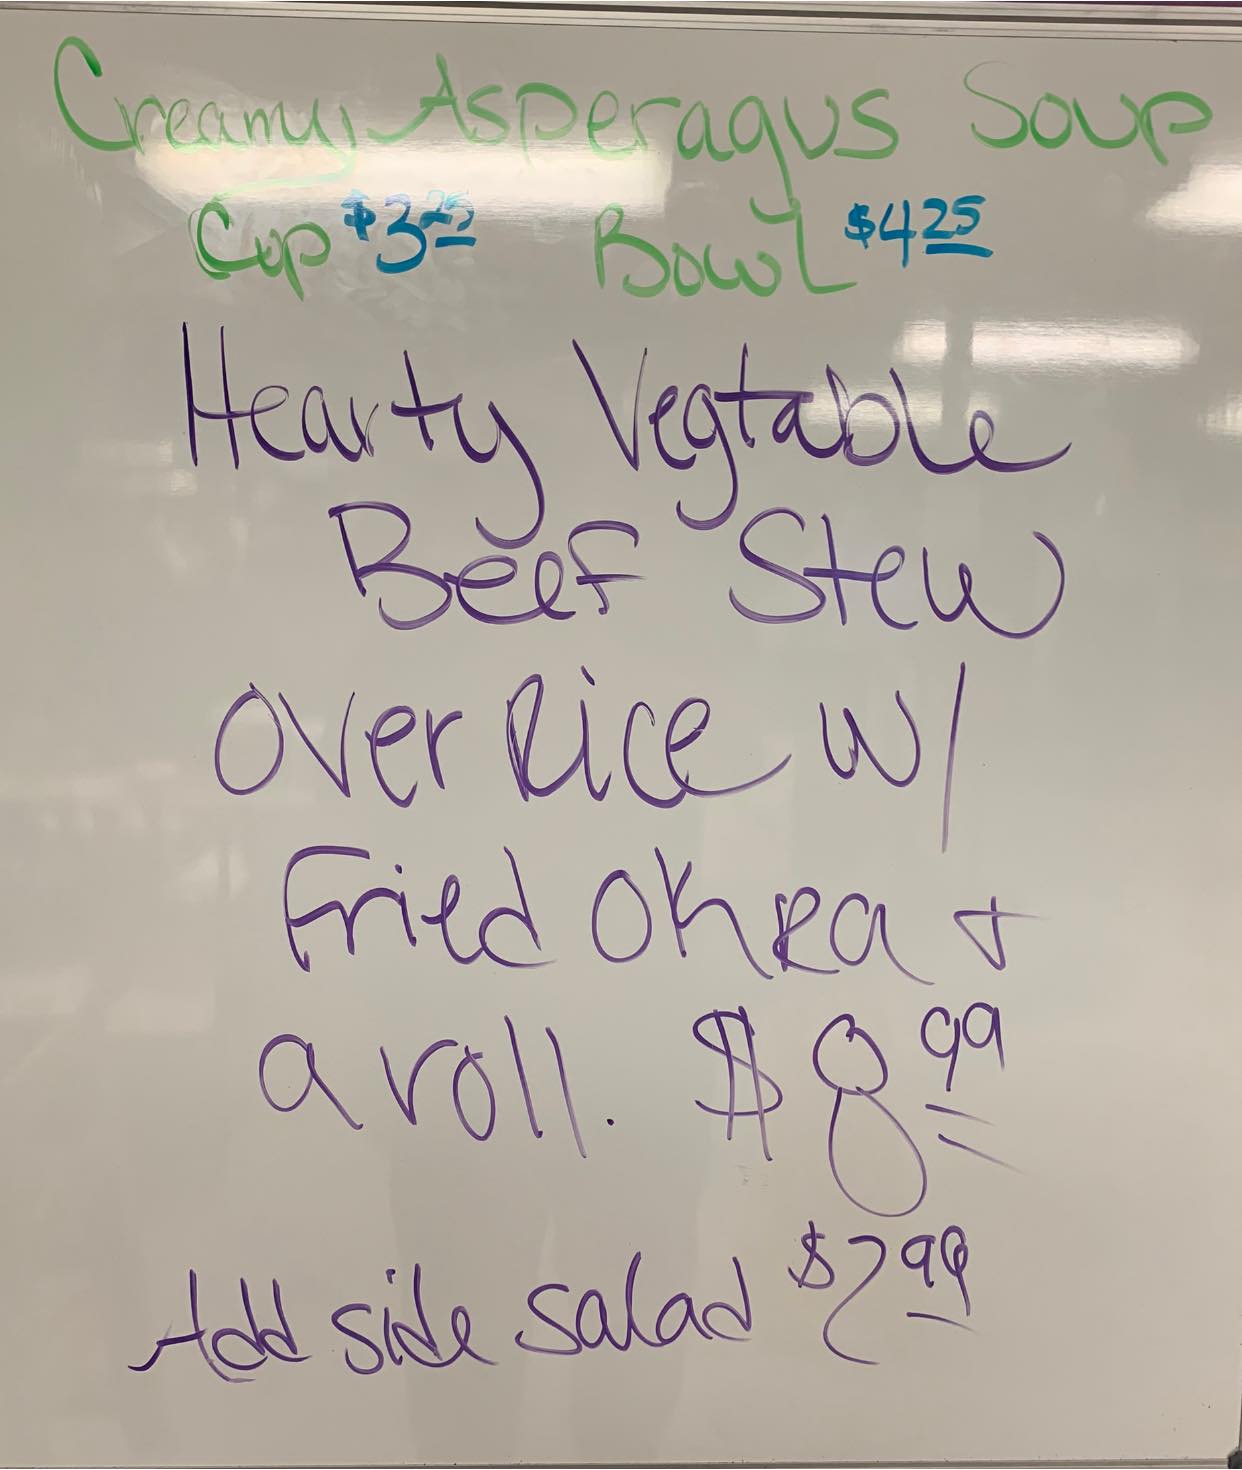 Creamy Asperagus Soup
Cup $3.25 Bowl $4.25
Hearty Vegtable
Beef Stew
over Rice w/
Fried Okra +
a roll. $8.99
Add side salad $2.99